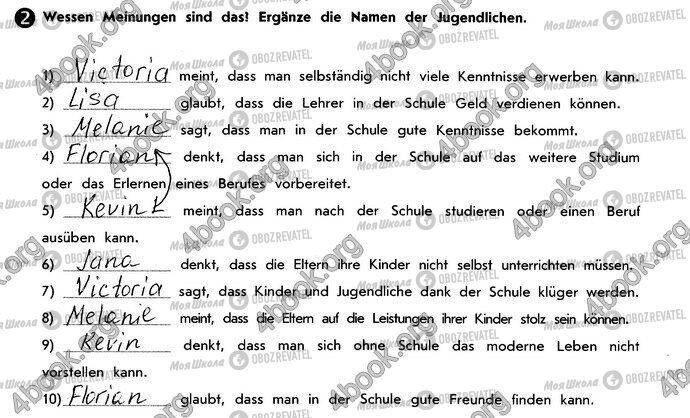 2 Wessen Meinungen sind das? Ergänze die Namen der Jugendlichen.
1) Victoria meint, dass man selbständig nicht viele Kenntnisse erwerben kann.
2) Lisa glaubt, dass die Lehrer in der Schule Geld verdienen können.
3) Melanie sagt, dass man in der Schule gute Kenntnisse bekommt.
4) Florian denkt, dass man sich in der Schule auf das weitere Studium
oder das Erlernen eines Berufes vorbereitet.
5) Kevin meint, dass man nach der Schule studieren oder einen Beruf
ausüben kann.
6) Jana denkt, dass die Eltern ihre Kinder nicht selbst unterrichten müssen.
7) Victoria sagt, dass Kinder und Jugendliche dank der Schule klüger werden.
8) Melanie meint, dass die Eltern auf die Leistungen ihrer Kinder stolz sein können.
9) Kevin denkt, dass man sich ohne Schule das moderne Leben nicht
vorstellen kann.
10) Florian glaubt, dass man in der Schule gute Freunde finden kann.
4book.org
Моя Школа OBOZREVATEL